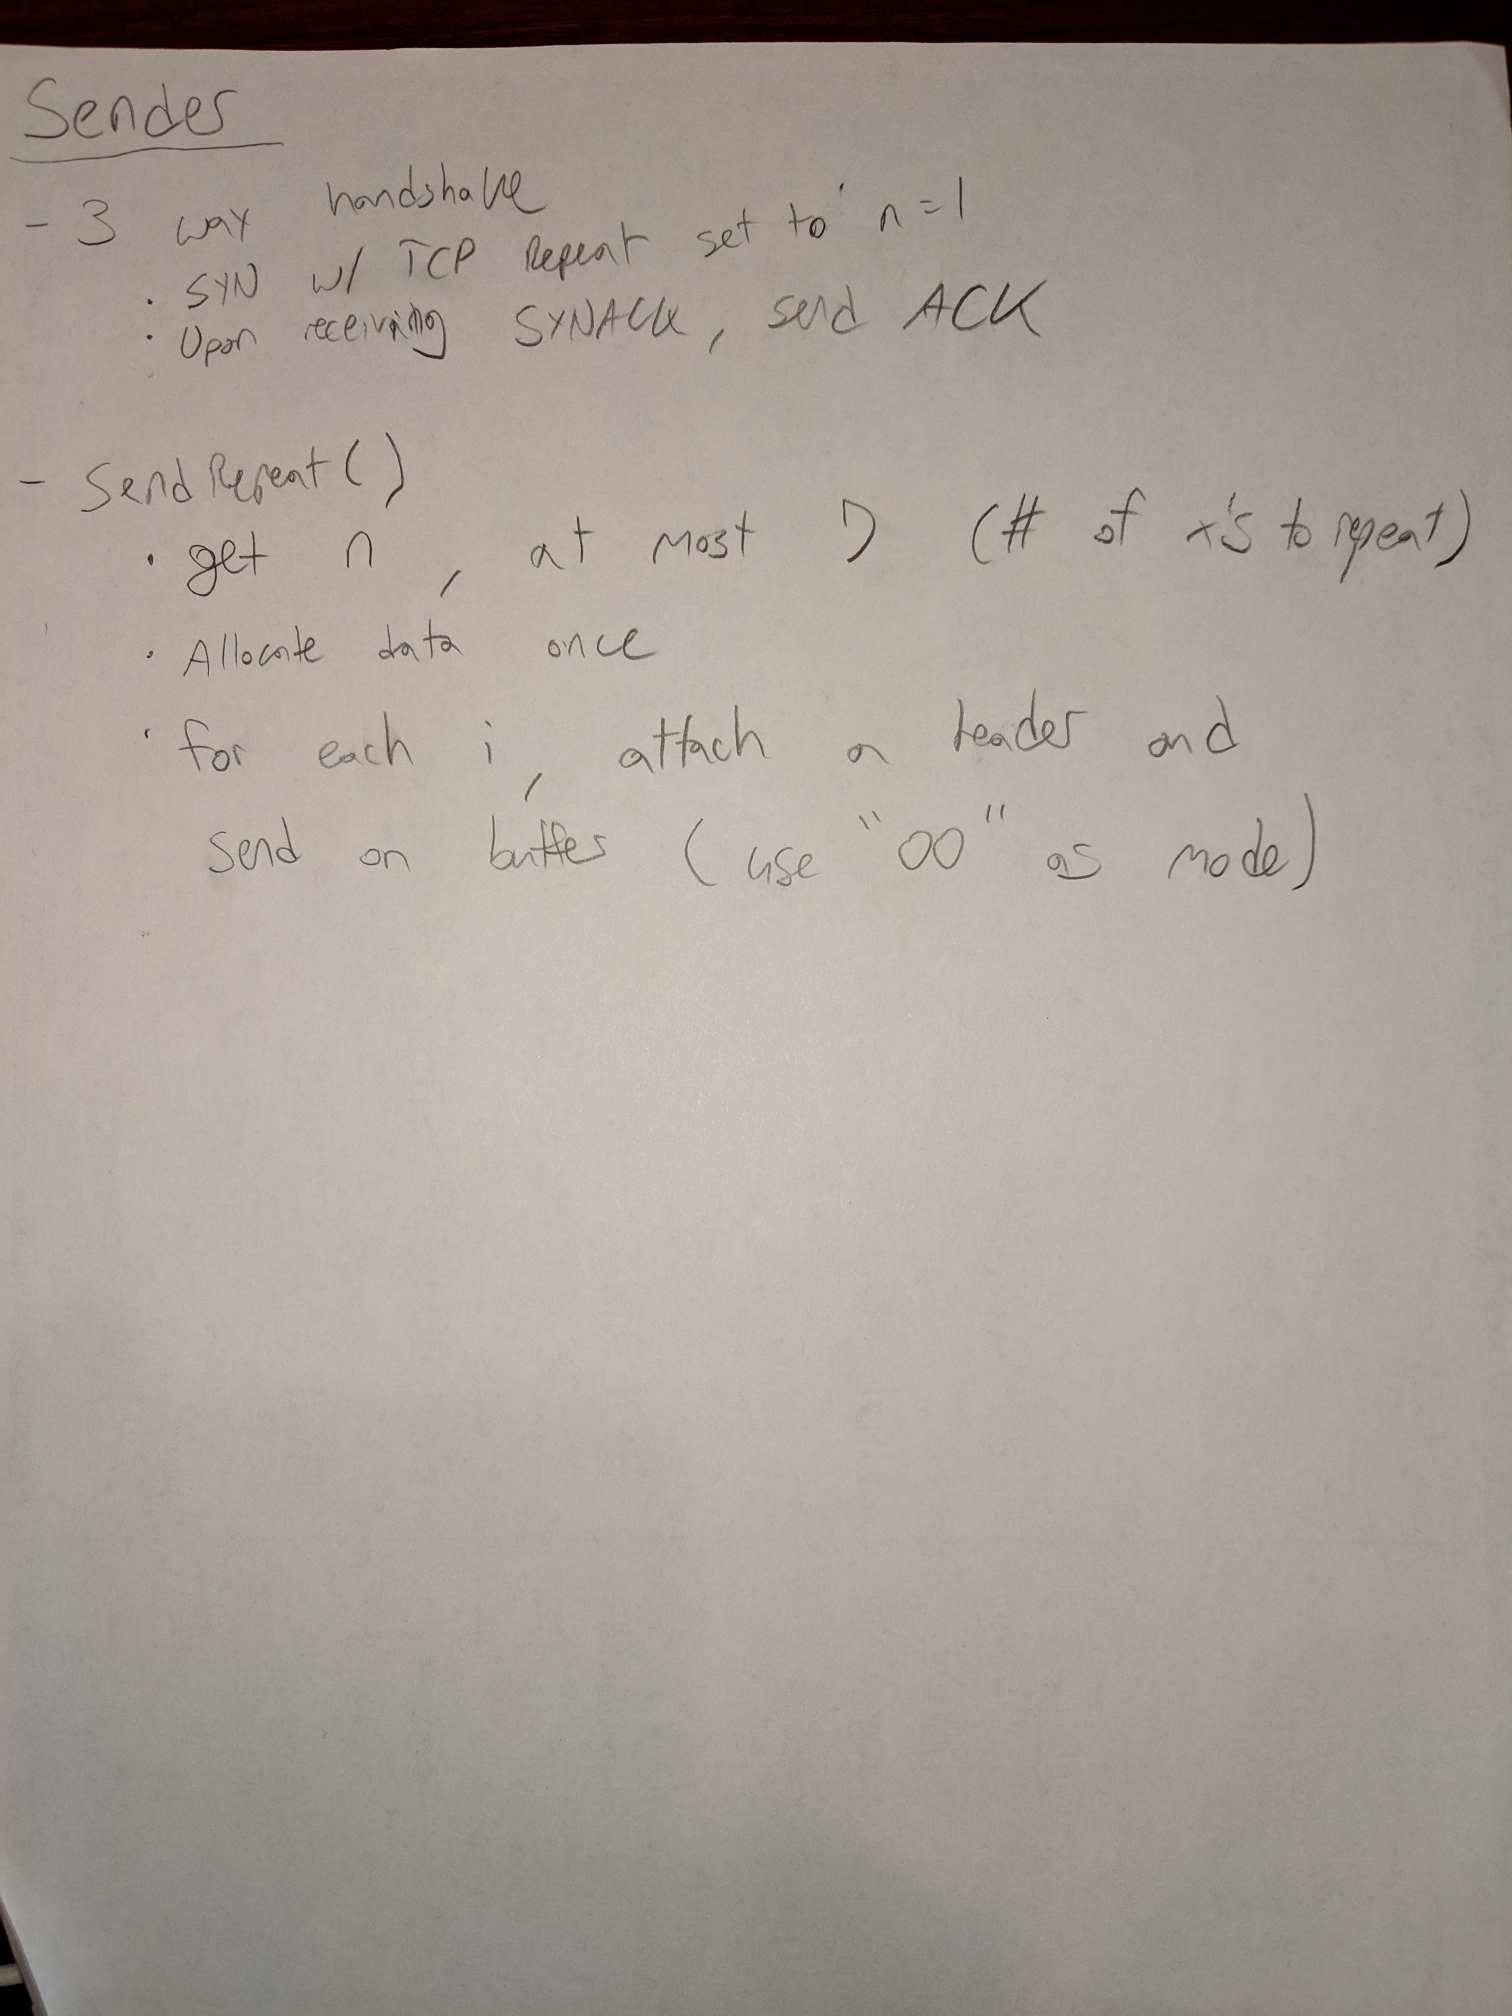 Sender
- 3 way handshake
· SYN w/ TCP Repeat set to n=1
· Upon receiving SYNACK, send ACK
- SendRepeat()
· get n, at most 7 (# of x's to repeat)
· Allocate data once
· for each i, attach a header and
send on buffer (use "00" as mode)